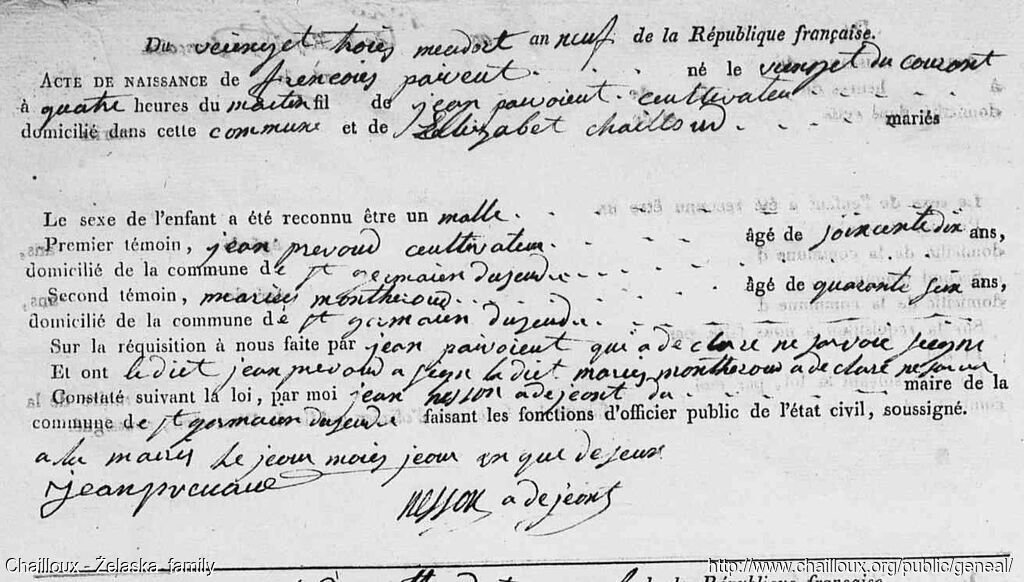 Du veiengt troies meadort an neuf de la République française.
ACTE DE NAISSANCE de frencoies paivent né le viengt du couront
à quatre heures du matin fil de jean paivoient ceultivateu
domicilié dans cette commune et de Elizabet chailloud mariés
Le sexe de l'enfant a été reconnu être un malle
Premier témoin, jean prevoud ceultivateur âgé de soincente dix ans,
domicilié de la commune de st germaien
Second témoin, maries montheroud âgé de quaronte seix ans,
domicilié de la commune de st germaien
Sur la réquisition à nous faite par jean paivoient qui a declare ne savoie siegne
Et ont ledict jean prevoud a siegn le dict maries montheroud a declaré ne savoir
Constaté suivant la loi, par moi jean nesson adejeont du maire de la
commune de st germaien faisant les fonctions d'officier public de l'état civil, soussigné.
a la maries le jeour moies jeour en que deseux
jean prevaud
nesson adejeont
Chailloux - Żelaska family
http://www.chailloux.org/public/geneal/
de la République française.